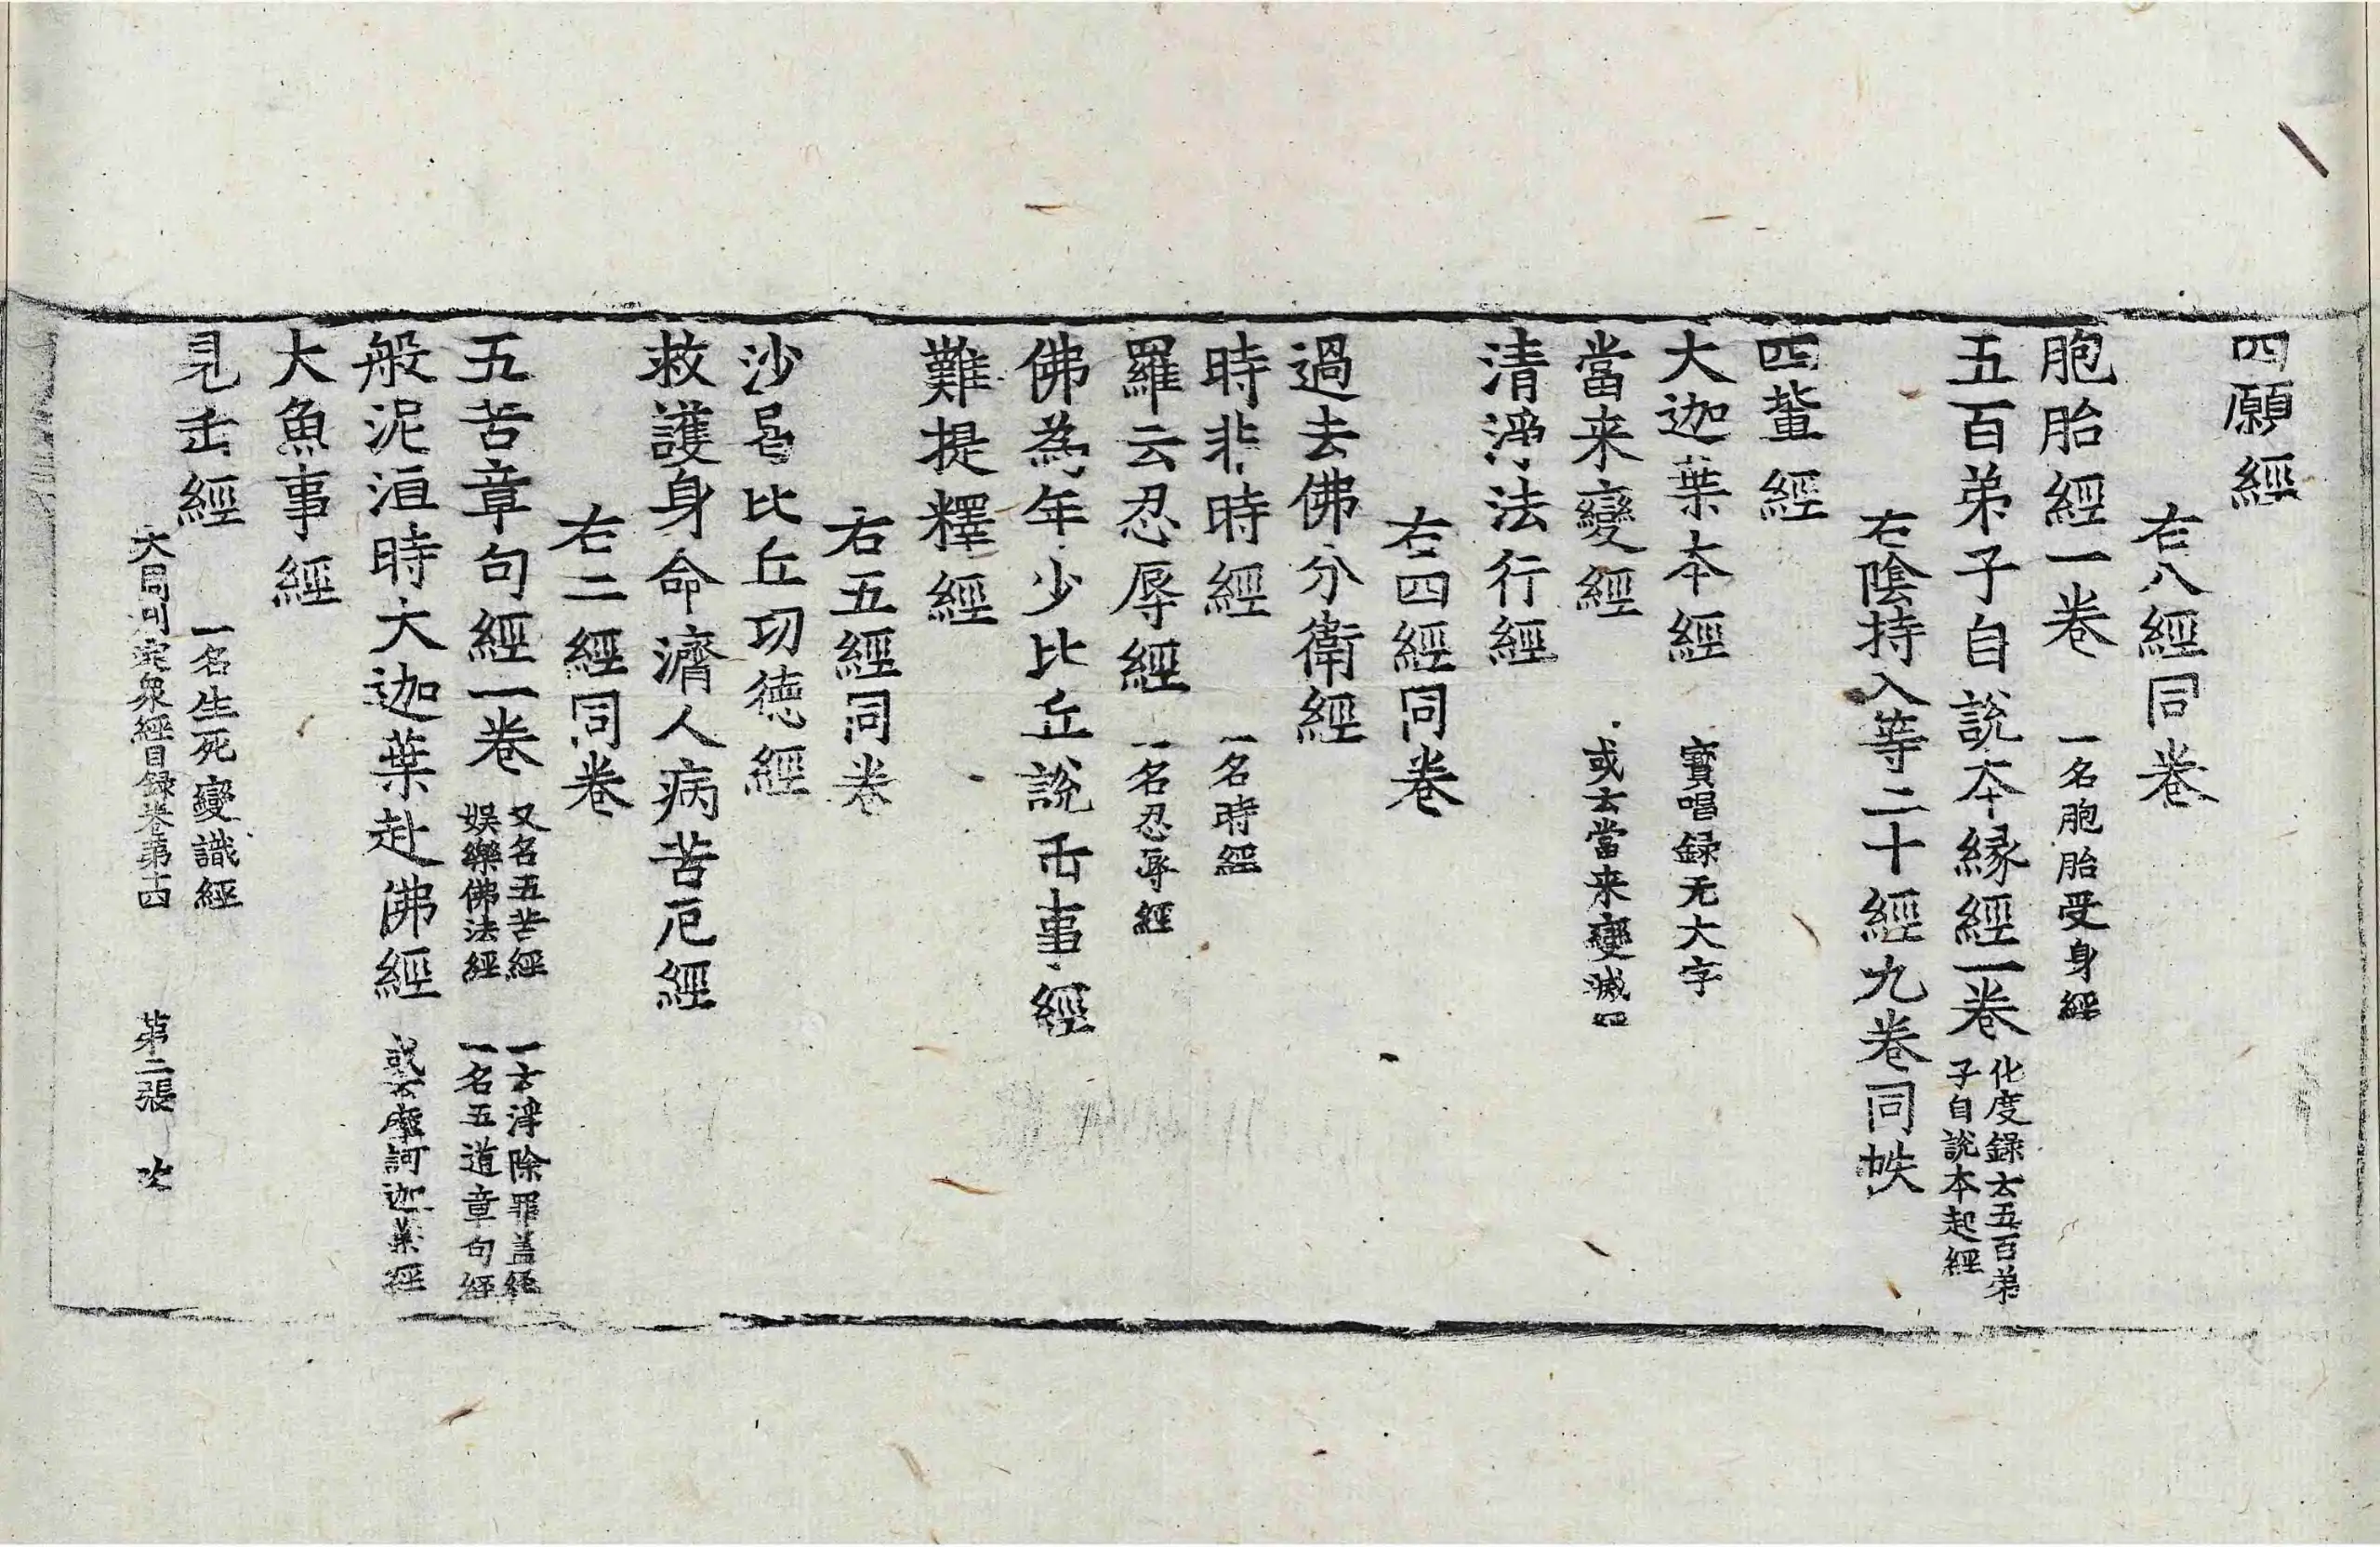 四願經
右八經同卷
胞胎經一卷 一名胞胎受身經
五百弟子自說本緣經一卷 化度錄云五百弟
子自說本起經
右陰持入等二十經九卷同帙
四蜚經
大迦葉本經 寶唱録无大字
當来變經 或云當来變滅經
清淨法行經
右四經同卷
過去佛分衛經
時非時經 一名時經
羅云忍辱經 一名忍辱經
佛為年少比丘說正事經
難提釋經
右五經同卷
沙曷比丘功德經
救護身命濟人病苦厄經
右二經同卷
五苦章句經一卷 又名五苦經 一云淨除罪盖經
娯樂佛法經 一名五道章句經
般泥洹時大迦葉赴佛經 或云摩訶迦葉經
大魚事經
見正經 一名生死變識經
大周刊定衆經目録卷第十四 第二張